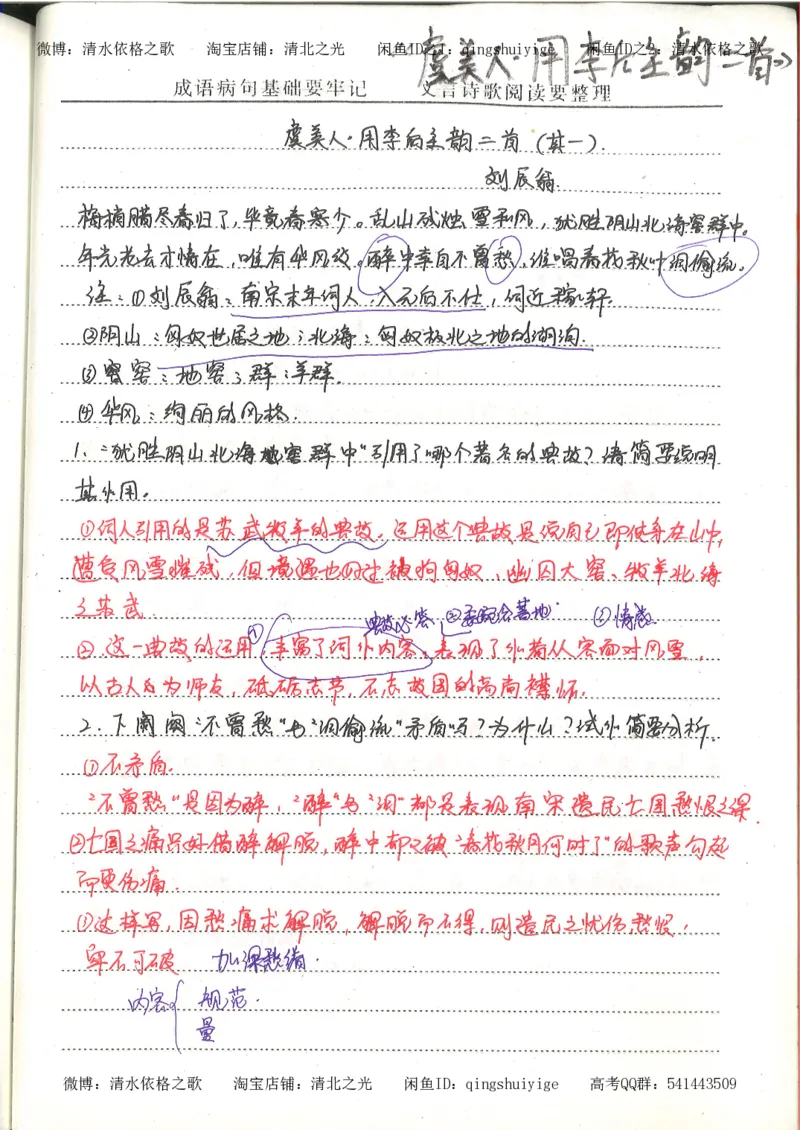 微博：清水依格之歌 淘宝店铺：清北之光 闲鱼ID之1：qingshuiyige 闲鱼ID之2：清水依格之歌
虞美人·用李后主韵二首
成语病句基础要牢记 文言诗歌阅读要整理
虞美人·用李后主韵二首（其一）.
刘辰翁.
梅梢腊尽春归了，毕竟春寒少。乱山残烛雪和风，犹胜阴山北海窖群中。
年光老去才情在，唯有华风改。醉中幸自不曾愁，谁唱春花秋叶泪偷流。
注：①刘辰翁：南宋末年词人，入元后不仕，词近稼轩.
②阴山：匈奴世居之地；北海：匈奴极北之地的湖泊.
③窖：地窖；群：羊群.
④华风：绚丽的风格.
1、“犹胜阴山北海窖群中”引用了哪个著名的典故？请简要说明
其作用。
①词人引用的是苏武牧羊的典故，运用这个典故是说自己即使身在山中，
遭受风雪摧残，但境遇也好过被拘匈奴、幽囚大窖、牧羊北海
之苏武.
典故内容 ②要配合着地 ③情感
②这一典故的运用①，丰富了词作内容，表现了作者从容面对风雪，
以古人为师友，砥砺志节，不忘故国的高尚襟怀.
2、下阕“不曾愁”与“泪偷流”矛盾吗？为什么？试作简要分析.
①不矛盾.
“不曾愁”是因为醉，“醉”与“泪”都是表现南宋遗民亡国愁恨之深.
②亡国之痛只好借醉解脱，醉中却又被“春花秋月何时了”的歌声勾起
而更伤痛.
①这样写，因愁痛求解脱，解脱而不得，则遗民之忧伤愁恨.
牢不可破 加深愁绪.
内容 规范.
量
微博：清水依格之歌 淘宝店铺：清北之光 闲鱼ID：qingshuiyige 高考QQ群：541443509